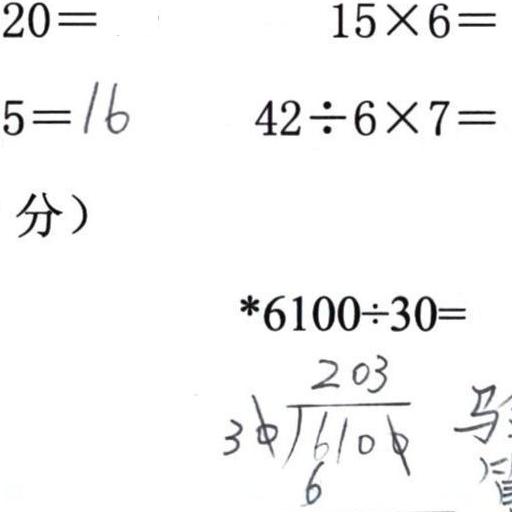 20= 15×6=
5=16 42÷6×7=
分）
*6100÷30=
203
30)6100
6